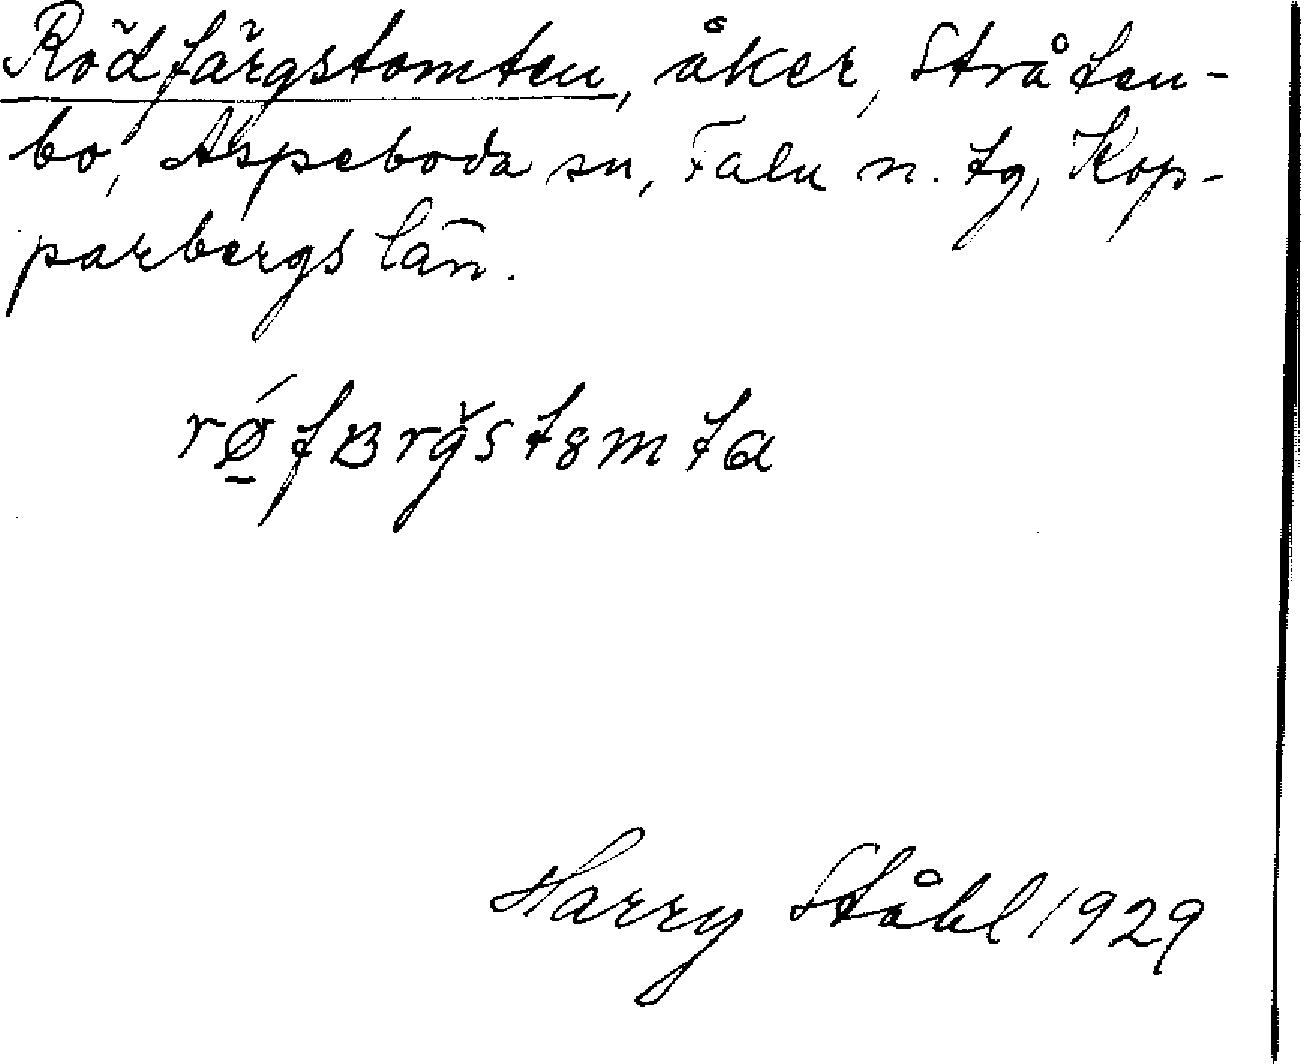 Rödfärgstomten, åker, Stråten-
bo, Aspeboda sn, Falu n. tg, Kop-
parbergs län.
Harry Ståhl 1929